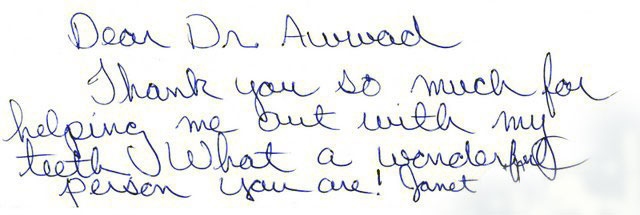 Dear Dr. Awwad
Thank you so much for
helping me out with my
teeth! What a wonderful
person you are! Janet